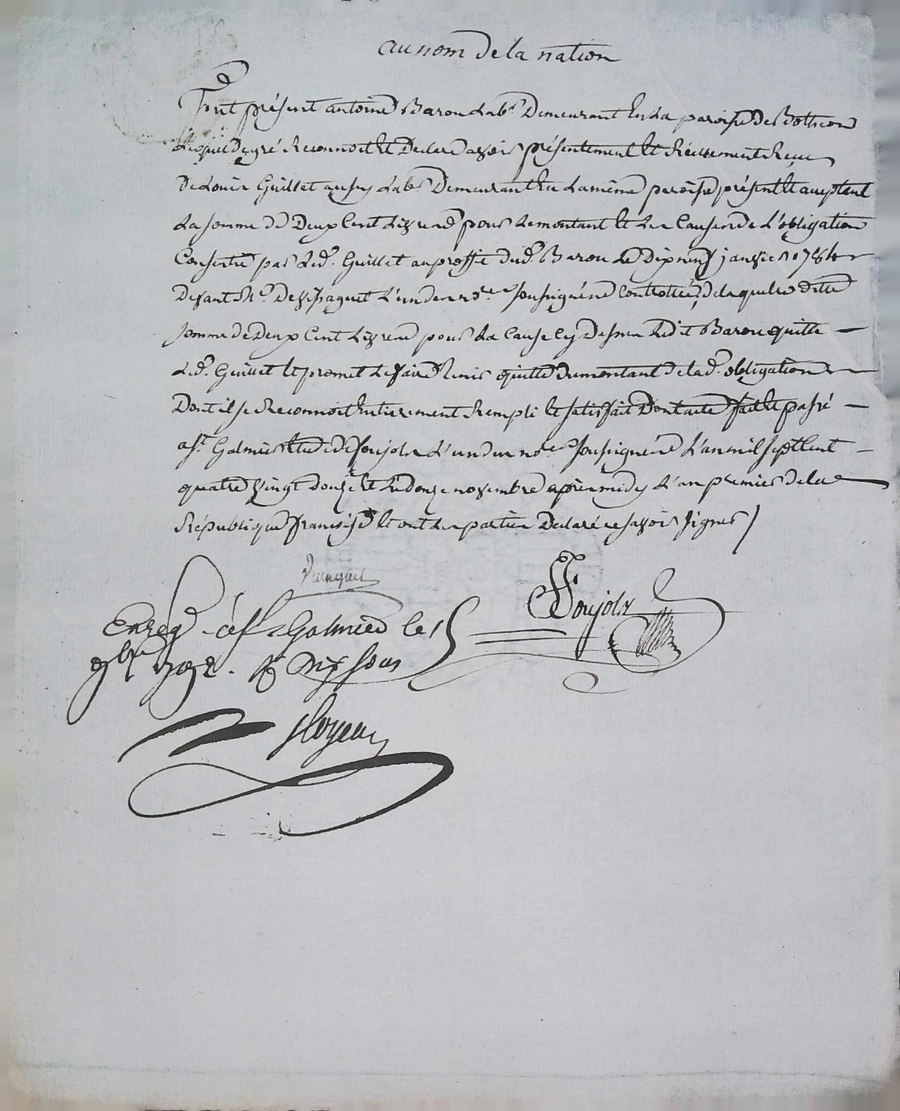 au nom de la nation
fut présent antoine Baron Lab.r Demeurant En La paroisse de Bothéon
Lequel De gré Reconnoit Et Declare avoir présentement Et Réellement Reçu
De Louis Guillet aussy Lab.r Demeurant En La même paroisse présent Et acceptant
La somme de Deux Cent Livres pour Le montant Et Les Causes de L'obligation
Consentie par Led. Guillet au proffit dud. Baron Le Dix neuf janvier 1784
Devant L'un des no.res soussignés Controllée, De laquelle dette
somme de Deux Cent Livres pour La Cause Cy Dessus Ledit Baron quitte
Led. Guillet Et promet Le faire tenir quitte du montant de lad. obligation
Dont il se Reconnoit Entierement Rempli Et satisfait Dont acte fait Et passé
a S.t Galmier Etude de Soujols L'un des no.res soussignés L'an mil sept Cent
quatre vingt Douze Et Le Douze novembre après midy L'an premier de la
République françoise Et ont Les parties Declaré ne savoir signer
Soujols
Enreg. à S.t Galmier le 15
9bre 1792. R. Dix sous